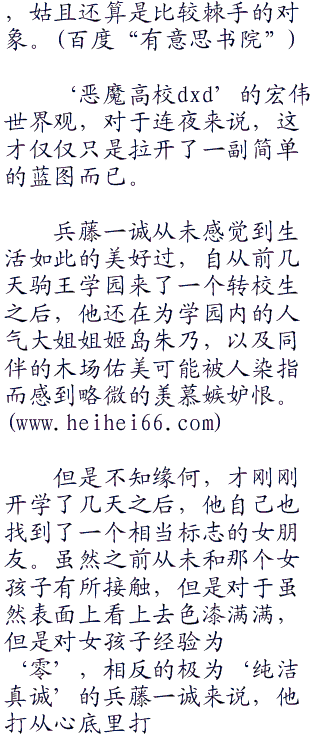 ，姑且还算是比较棘手的对
象。(百度“有意思书院”)
‘恶魔高校dxd’的宏伟
世界观，对于连夜来说，这
才仅仅只是拉开了一副简单
的蓝图而已。
兵藤一诚从未感觉到生
活如此的美好过，自从前几
天驹王学园来了一个转校生
之后，他还在为学园内的人
气大姐姐姬岛朱乃，以及同
伴的木场佑美可能被人染指
而感到略微的羡慕嫉妒恨。
(www.heihei66.com)
但是不知缘何，才刚刚
开学了几天之后，他自己也
找到了一个相当标志的女朋
友。虽然之前从未和那个女
孩子有所接触，但是对于虽
然表面上看上去色漆满满，
但是对女孩子经验为
‘零’，相反的极为‘纯洁
真诚’的兵藤一诚来说，他
打从心底里打